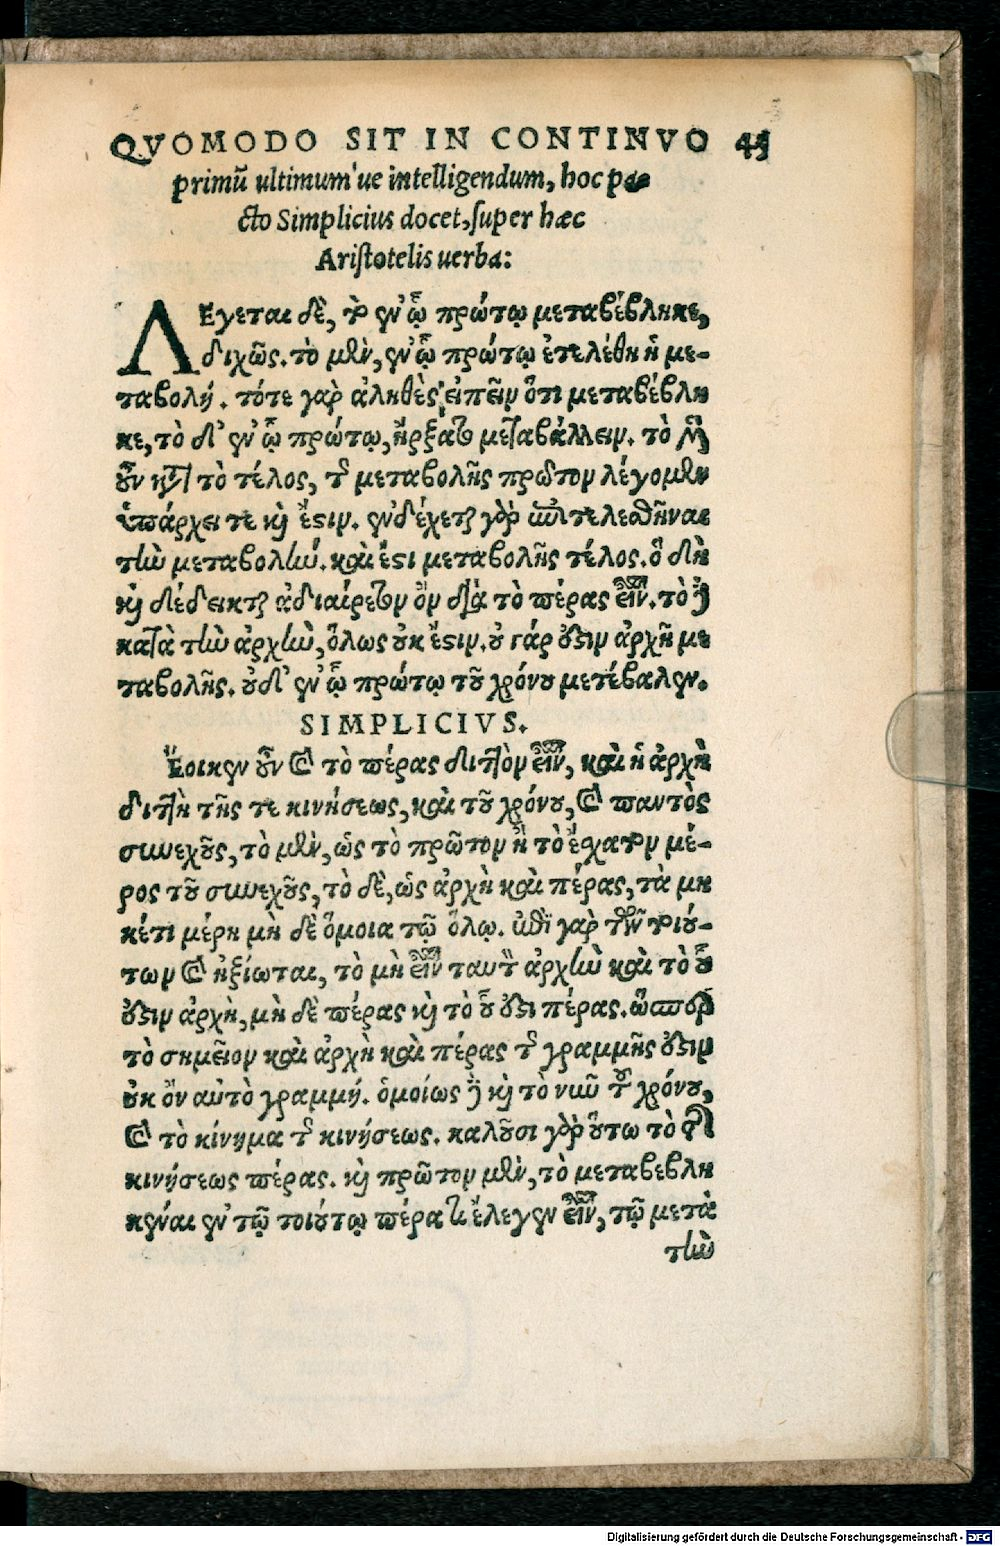 QVOMODO SIT IN CONTINVO 45
primū ultimum'ue intelligendum, hoc pa
cto Simplicius docet, super hæc
Aristotelis uerba:
ΛΕγεται δὲ, τὸ ἐν ᾧ πρώτῳ μεταβέβληκε,
διχῶς. τὸ μὲν, ἐν ᾧ πρώτῳ ἐτελέθη ἡ με-
ταβολή. τότε γαρ ἀληθὲς εἰπεῖν ὅτι μεταβέβλη
κε, τὸ δ' ἐν ᾧ πρώτῳ, ἤρξατο μεταβάλλειν. τὸ μὲν
οὖν κατὰ τὸ τέλος, τῆς μεταβολῆς πρῶτον λέγομεν
ὑπάρχει τε καὶ ἔστιν. ἐνδέχεται γὰρ ἐπιτελεσθῆναι
τὴν μεταβολὴν. καὶ ἔστι μεταβολῆς τέλος. ὃ δὴ
καὶ δέδεικται ἀδιαίρετον ὂν διὰ τὸ πέρας εἶναι. τὸ δὲ
κατὰ τὴν ἀρχὴν, ὅλως οὐκ ἔστιν. οὐ γάρ ἐστιν ἀρχὴ με
ταβολῆς. οὐδ' ἐν ᾧ πρώτῳ τοῦ χρόνου μετέβαλεν.
SIMPLICIVS.
Ἔοικεν οὖν καὶ τὸ πέρας διττὸν εἶναι, καὶ ἡ ἀρχὴ
διττὴ τῆς τε κινήσεως, καὶ τοῦ χρόνου, καὶ παντὸς
συνεχοῦς, τὸ μὲν, ὡς τὸ πρῶτον ἢ τὸ ἔσχατον μέ-
ρος τοῦ συνεχοῦς, τὸ δὲ, ὡς ἀρχὴ καὶ πέρας, τὰ μη
κέτι μέρη μὴ δὲ ὅμοια τῷ ὅλῳ. ἐπὶ γαρ τῶν τοιού-
των καὶ ἠξίωται, τὸ μὴ εἶναι ταυτὸ ἀρχὴν καὶ τὸ οὗ
ἐστιν ἀρχὴ, μὴ δὲ πέρας καὶ τὸ οὗ ἐστι πέρας. ὥσπερ
τὸ σημεῖον καὶ ἀρχὴ καὶ πέρας τῆς γραμμῆς ἐστιν
οὐκ ὂν αὐτὸ γραμμή. ὁμοίως δὲ καὶ τὸ νῦν τοῦ χρόνου,
καὶ τὸ κίνημα τῆς κινήσεως. καλοῦσι γὰρ οὕτω τὸ τῆς
κινήσεως πέρας. καὶ πρῶτον μὲν, τὸ μεταβεβλη
κέναι ἐν τῷ τοιούτῳ πέρατι ἔλεγεν εἶναι, τῷ μετὰ
τὴν
Digitalisierung gefördert durch die Deutsche Forschungsgemeinschaft - DFG